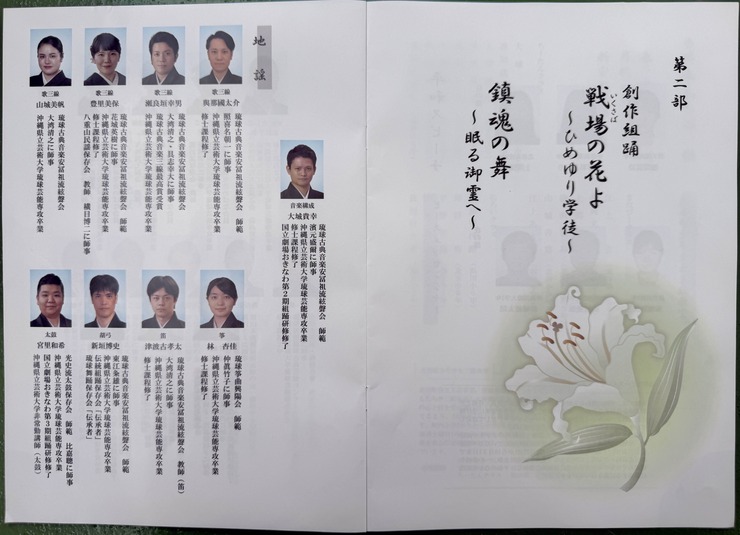 第二部
創作組踊
戦場の花よ
いくさば
～ひめゆり学徒～
鎮魂の舞
～眠る御霊へ～
地謡
音楽構成
大城貴幸
琉球古典音楽安冨祖流絃聲会 師範
濱元盛爾に師事
沖縄県立芸術大学琉球芸能専攻卒業
修士課程修了
国立劇場おきなわ第2期組踊研修修了
歌三線
與那國太介
琉球古典音楽安冨祖流絃聲会 師範
照喜名朝一に師事
沖縄県立芸術大学琉球芸能専攻卒業
修士課程修了
歌三線
瀬良垣幸男
琉球古典音楽安冨祖流絃聲会 師範
大湾清之・具志幸大に師事
琉球古典音楽三線最高賞受賞
沖縄県立芸術大学琉球芸能専攻卒業
歌三線
豊里美保
琉球古典音楽安冨祖流絃聲会 師範
花城英樹に師事
沖縄県立芸術大学琉球芸能専攻卒業
修士課程修了
八重山民謡保存会 教師 横目博二に師事
歌三線
山城美帆
琉球古典音楽安冨祖流絃聲会 師範
大湾清之に師事
沖縄県立芸術大学琉球芸能専攻卒業
箏
林 杏佳
琉球箏曲興陽会 師範
仲眞竹子に師事
沖縄県立芸術大学琉球芸能専攻卒業
修士課程修了
笛
津波古孝太
琉球古典音楽安冨祖流絃聲会 教師（笛）
大湾清之に師事
沖縄県立芸術大学琉球芸能専攻卒業
修士課程修了
胡弓
新垣博史
琉球古典音楽安冨祖流絃聲会 師範
東江条雄に師事
沖縄県立芸術大学琉球芸能専攻卒業
伝統組踊保存会「伝承者」
琉球舞踊保存会「伝承者」
太鼓
宮里和希
光史流太鼓保存会 師範 比嘉聰に師事
沖縄県立芸術大学琉球芸能専攻卒業
国立劇場おきなわ第3期組踊研修修了
沖縄県立芸術大学非常勤講師（太鼓）